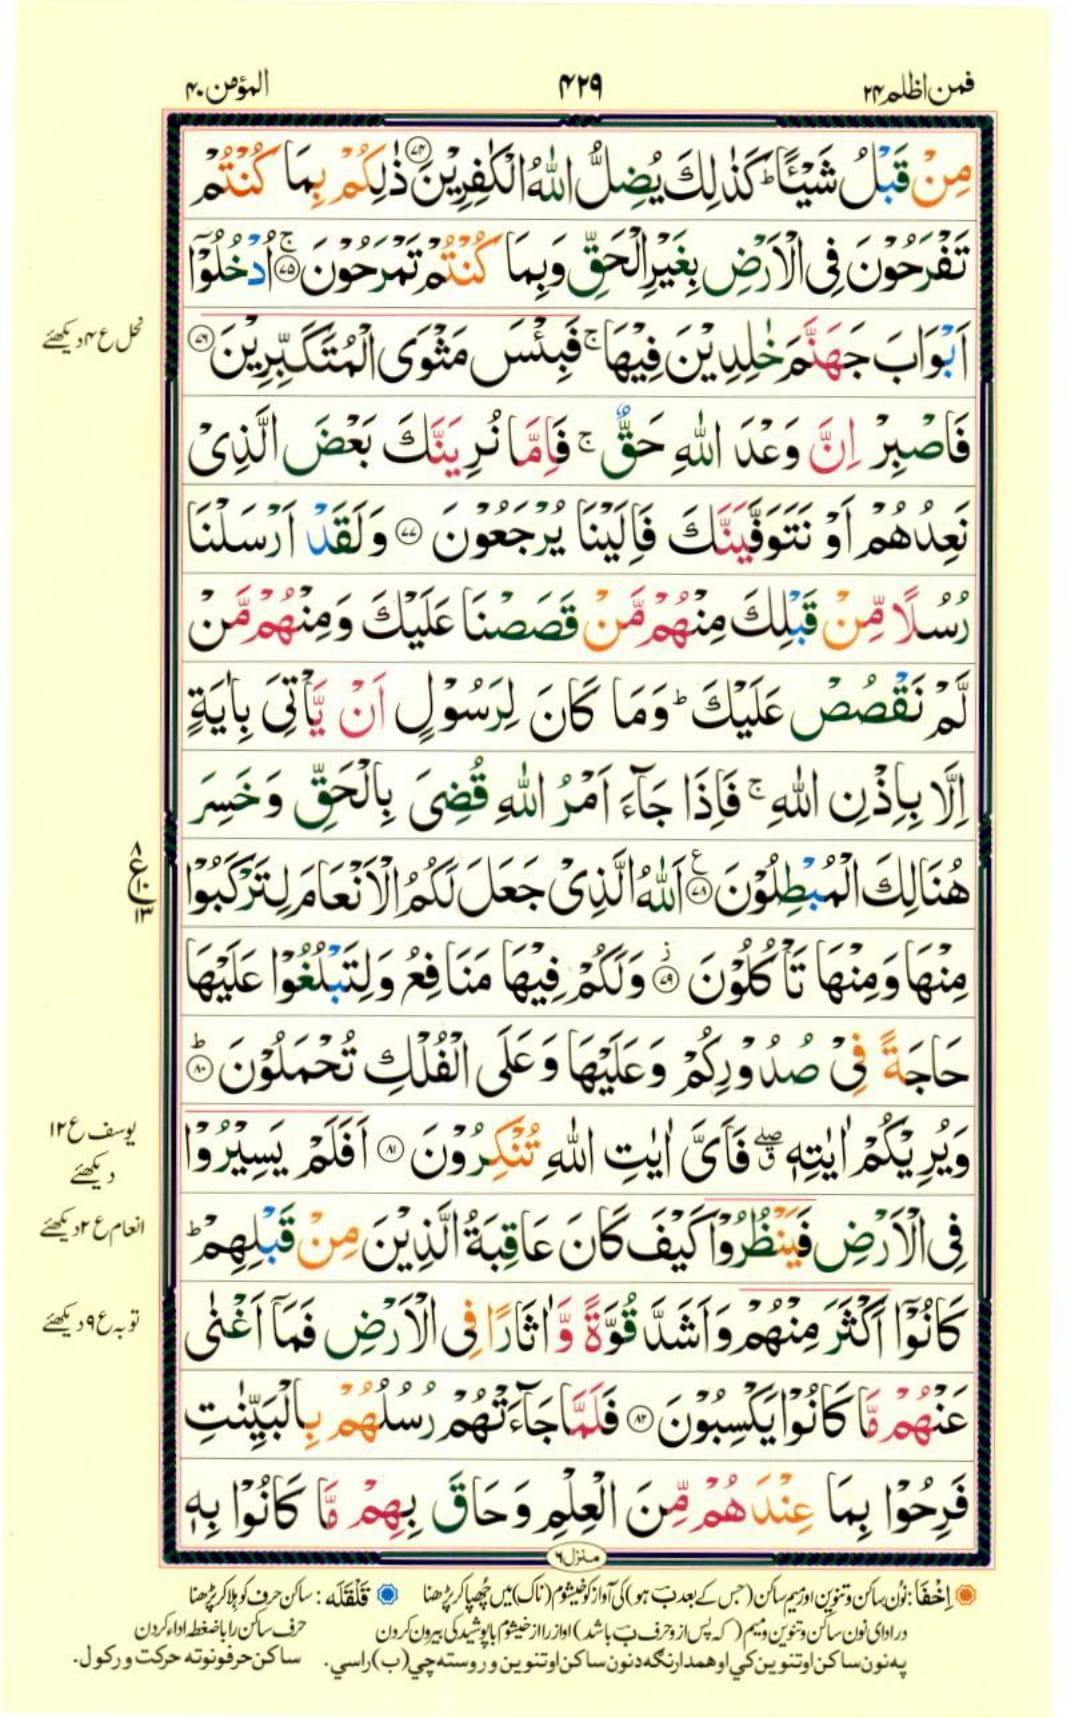 فمن اظلم ۲۴
۴۲۹
المؤمن ۴۰
مِنْ قَبْلُ شَيْـًٔا ؕ كَذٰلِكَ يُضِلُّ اللّٰهُ الْكٰفِرِيْنَ ﴿۷۴﴾ ذٰلِكُمْ بِمَا كُنْتُمْ
تَفْرَحُوْنَ فِى الْاَرْضِ بِغَيْرِ الْحَقِّ وَبِمَا كُنْتُمْ تَمْرَحُوْنَ ۚ﴿۷۵﴾ اُدْخُلُوْۤا
اَبْوَابَ جَهَنَّمَ خٰلِدِيْنَ فِيْهَا ۚ فَبِئْسَ مَثْوَى الْمُتَكَبِّرِيْنَ ﴿۷۶﴾
نحل ع ۴ دیکھئے
فَاصْبِرْ اِنَّ وَعْدَ اللّٰهِ حَقٌّ ۚ فَاِمَّا نُرِيَنَّكَ بَعْضَ الَّذِىْ
نَعِدُهُمْ اَوْ نَتَوَفَّيَنَّكَ فَاِلَيْنَا يُرْجَعُوْنَ ﴿۷۷﴾ وَلَقَدْ اَرْسَلْنَا
رُسُلًا مِّنْ قَبْلِكَ مِنْهُمْ مَّنْ قَصَصْنَا عَلَيْكَ وَمِنْهُمْ مَّنْ
لَّمْ نَقْصُصْ عَلَيْكَ ؕ وَمَا كَانَ لِرَسُوْلٍ اَنْ يَّاْتِىَ بِاٰيَةٍ
اِلَّا بِاِذْنِ اللّٰهِ ۚ فَاِذَا جَآءَ اَمْرُ اللّٰهِ قُضِىَ بِالْحَقِّ وَخَسِرَ
هُنَالِكَ الْمُبْطِلُوْنَ ﴿۷۸﴾ع اَللّٰهُ الَّذِىْ جَعَلَ لَكُمُ الْاَنْعَامَ لِتَرْكَبُوْا
۸ ع ۱۰ ۱۳
مِنْهَا وَمِنْهَا تَاْكُلُوْنَ ﴿۷۹﴾ز وَلَكُمْ فِيْهَا مَنَافِعُ وَلِتَبْلُغُوْا عَلَيْهَا
حَاجَةً فِىْ صُدُوْرِكُمْ وَعَلَيْهَا وَعَلَى الْفُلْكِ تُحْمَلُوْنَ ؕ﴿۸۰﴾
وَيُرِيْكُمْ اٰيٰتِهٖ ۖ فَاَىَّ اٰيٰتِ اللّٰهِ تُنْكِرُوْنَ ﴿۸۱﴾ اَفَلَمْ يَسِيْرُوْا
یوسف ع ۱۲
دیکھئے
فِى الْاَرْضِ فَيَنْظُرُوْا كَيْفَ كَانَ عَاقِبَةُ الَّذِيْنَ مِنْ قَبْلِهِمْ ؕ
انعام ع ۲ دیکھئے
كَانُوْۤا اَكْثَرَ مِنْهُمْ وَاَشَدَّ قُوَّةً وَّاٰثَارًا فِى الْاَرْضِ فَمَاۤ اَغْنٰى
توبہ ع ۹ دیکھئے
عَنْهُمْ مَّا كَانُوْا يَكْسِبُوْنَ ﴿۸۲﴾ فَلَمَّا جَآءَتْهُمْ رُسُلُهُمْ بِالْبَيِّنٰتِ
فَرِحُوْا بِمَا عِنْدَهُمْ مِّنَ الْعِلْمِ وَحَاقَ بِهِمْ مَّا كَانُوْا بِهٖ
منزل ۶
اِخْفَا: نون ساکن و تنوین اور میم ساکن (جس کے بعد ب ہو) کی آواز کو خیشوم (ناک) میں چھپا کر پڑھنا قَلْقَلَہ: ساکن حرف کو ہلا کر پڑھنا
در ادای نون ساکن و تنوین و میم (که پس از و حرف ب باشد) آواز را از خیشوم با پوشیدگی بیرون کردن حرف ساکن را باضغطه ادا کردن
په نون ساکن او تنوین کي او همدارنګه د نون ساکن او تنوین وروسته چي (ب) راسي. ساکن حرفونو ته حرکت ورکول.